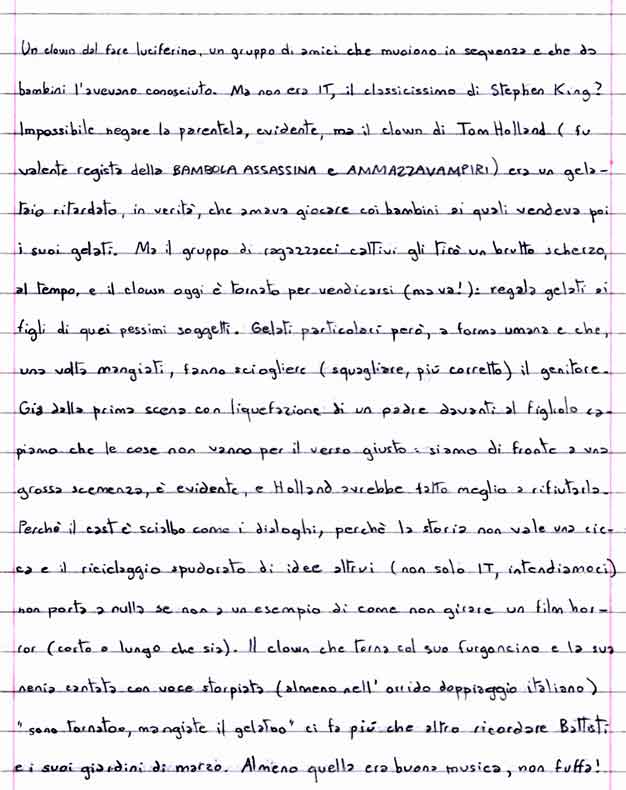 Un clown dal fare luciferino, un gruppo di amici che muoiono in sequenza e che da
bambini l'avevano conosciuto. Ma non era IT, il classicissimo di Stephen King?
Impossibile negare la parentela, evidente, ma il clown di Tom Holland (fu
valente regista della BAMBOLA ASSASSINA e AMMAZZAVAMPIRI) era un gela-
taio ritardato, in verità, che amava giocare coi bambini ai quali vendeva poi
i suoi gelati. Ma il gruppo di ragazzacci cattivi gli tirò un brutto scherzo,
al tempo, e il clown oggi è tornato per vendicarsi (ma va!): regala gelati ai
figli di quei pessimi soggetti. Gelati particolari però, a forma umana e che,
una volta mangiati, fanno sciogliere (squagliare, più corretto) il genitore.
Già dalla prima scena con liquefazione di un padre davanti al figliolo ca-
piamo che le cose non vanno per il verso giusto: siamo di fronte a una
grossa scemenza, è evidente, e Holland avrebbe fatto meglio a rifiutarla.
Perché il cast è scialbo come i dialoghi, perché la storia non vale una cic-
ca e il riciclaggio spudorato di idee altrui (non solo IT, intendiamoci)
non porta a nulla se non a un esempio di come non girare un film hor-
ror (corto o lungo che sia). Il clown che torna col suo furgoncino e la sua
nenia cantata con voce storpiata (almeno nell'orrido doppiaggio italiano)
"sono tornatoo, mangiate il gelatoo" ci fa più che altro ricordare Battisti
e i suoi giardini di marzo. Almeno quella era buona musica, non fuffa!